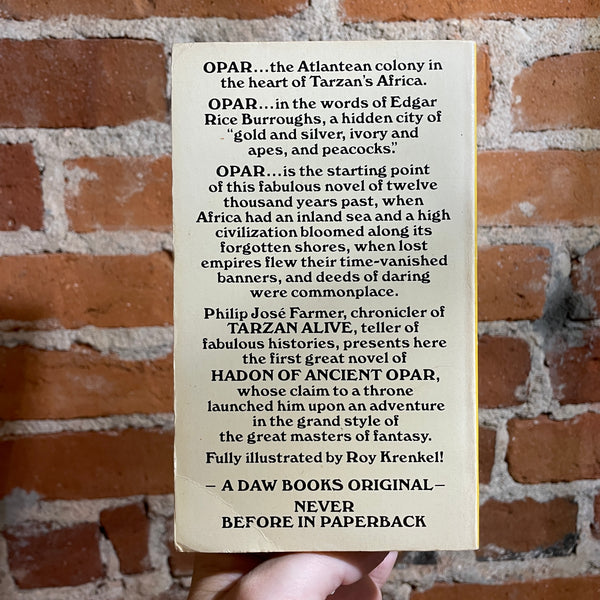 OPAR...the Atlantean colony in
the heart of Tarzan's Africa.
OPAR...in the words of Edgar
Rice Burroughs, a hidden city of
"gold and silver, ivory and
apes, and peacocks."
OPAR...is the starting point
of this fabulous novel of twelve
thousand years past, when
Africa had an inland sea and a high
civilization bloomed along its
forgotten shores, when lost
empires flew their time-vanished
banners, and deeds of daring
were commonplace.
Philip José Farmer, chronicler of
TARZAN ALIVE, teller of
fabulous histories, presents here
the first great novel of
HADON OF ANCIENT OPAR,
whose claim to a throne
launched him upon an adventure
in the grand style of
the great masters of fantasy.
Fully illustrated by Roy Krenkel!
– A DAW BOOKS ORIGINAL –
NEVER
BEFORE IN PAPERBACK